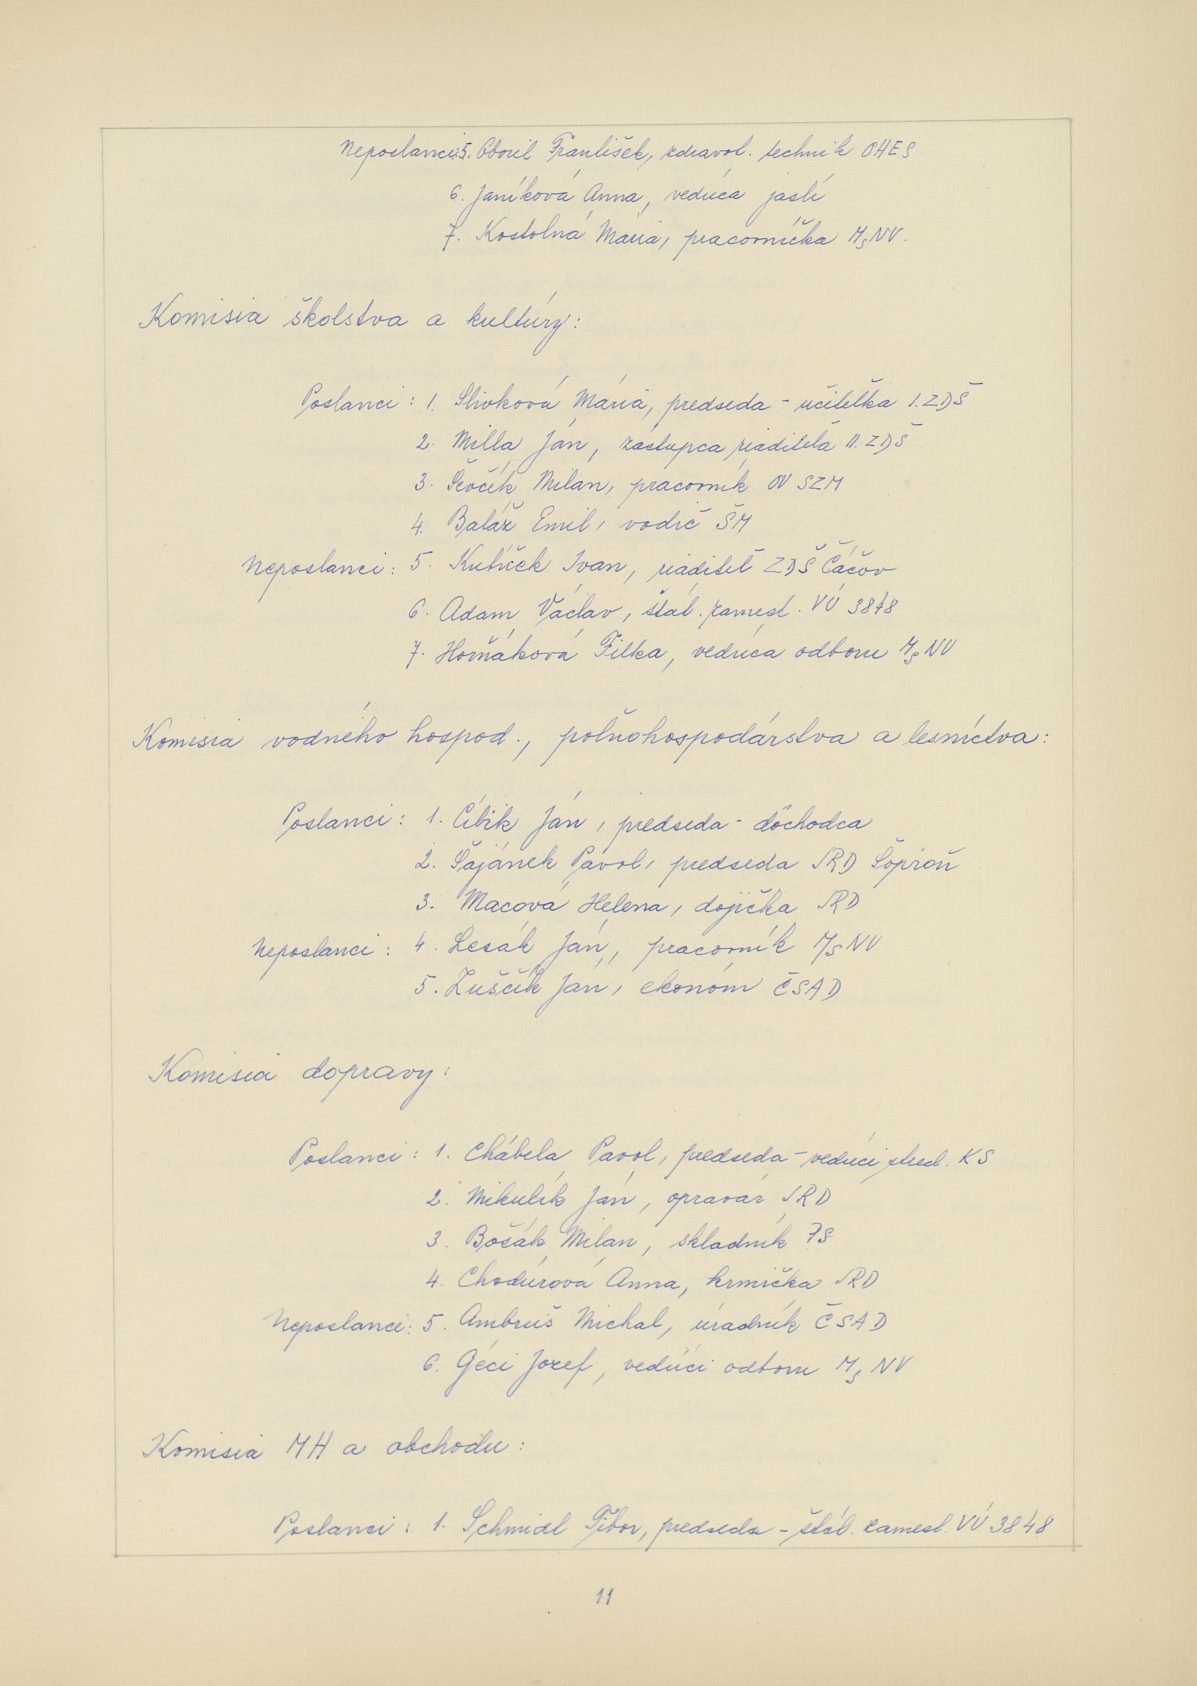 Neposlanci: 5. Oboril František, zdravot. technik OHES
6. Janíková Anna, vedúca jaslí
7. Kostolná Mária, pracovníčka MsNV.
Komisia školstva a kultúry:
Poslanci: 1. Slivková Mária, predseda - učiteľka I. ZDŠ
2. Milla Ján, zástupca riaditeľa II. ZDŠ
3. Ševčík Milan, pracovník OV SZM
4. Baláž Emil, vodič ŠM
Neposlanci: 5. Kubíček Ivan, riaditeľ ZDŠ Čáčov
6. Adam Václav, štát. zamest. VÚ 3848
7. Horňáková Filka, vedúca odboru MsNV
Komisia vodného hospod., poľnohospodárstva a lesníctva:
Poslanci: 1. Cíbik Ján, predseda - dôchodca
2. Šajánek Pavol, predseda JRD Šoproň
3. Macová Helena, dojička JRD
Neposlanci: 4. Lesák Ján, pracovník MsNV
5. Luščík Ján, ekonóm ČSAD
Komisia dopravy:
Poslanci: 1. Chábela Pavol, predseda - vedúci stred. KS
2. Mikulík Ján, opravár JRD
3. Bošák Milan, skladník ZS
4. Chodúrová Anna, krmička JRD
Neposlanci: 5. Ambruš Michal, úradník ČSAD
6. Géci Jozef, vedúci odboru MsNV
Komisia MH a obchodu:
Poslanci: 1. Schmidl Tibor, predseda - štát. zamest. VÚ 3848
11